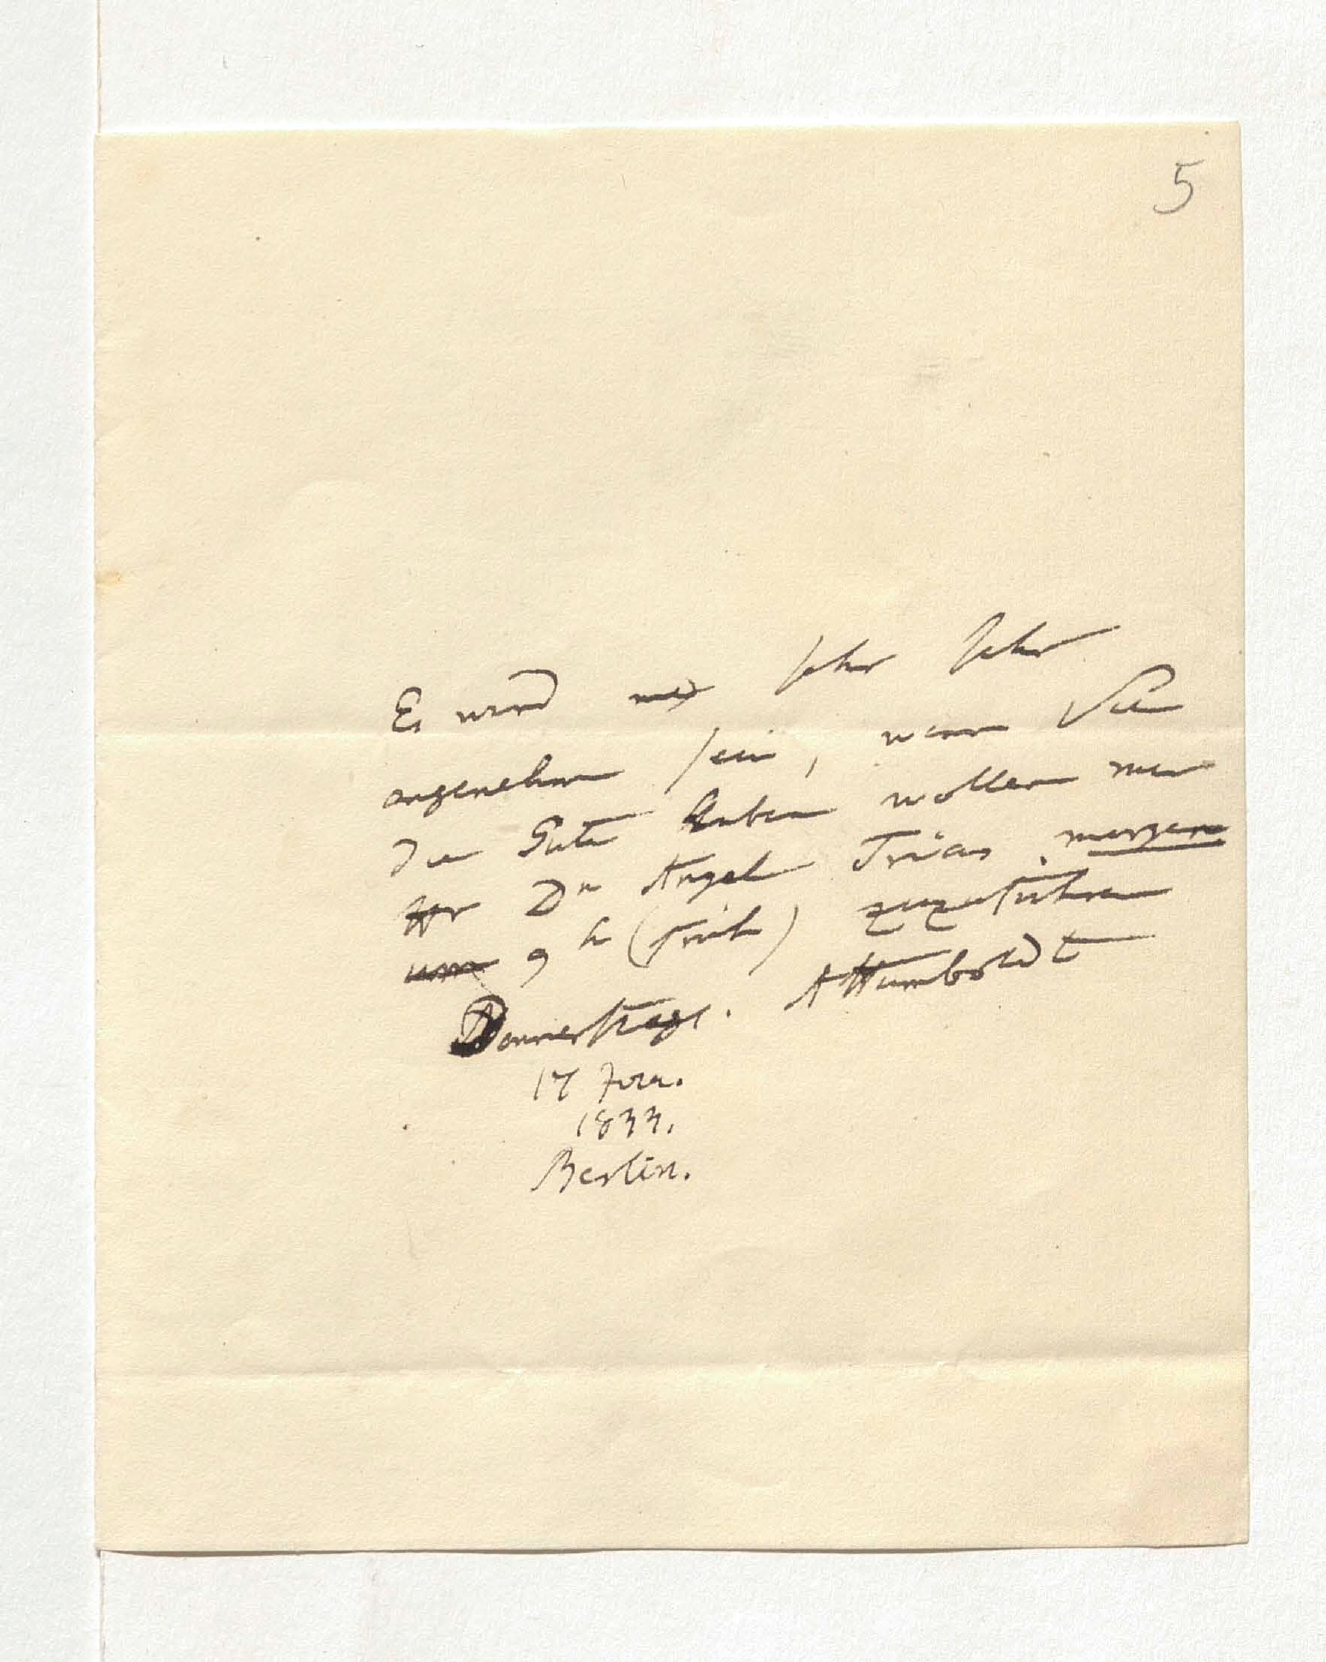 5
Es wird mir sehr sehr
angenehm sein, wenn Sie
die Güte haben wollen mir
Hr Dr Angel Trias morgen
um 9 h (früh) zuzuführen
Donnerstags. AHumboldt
17
1833.
Berlin.